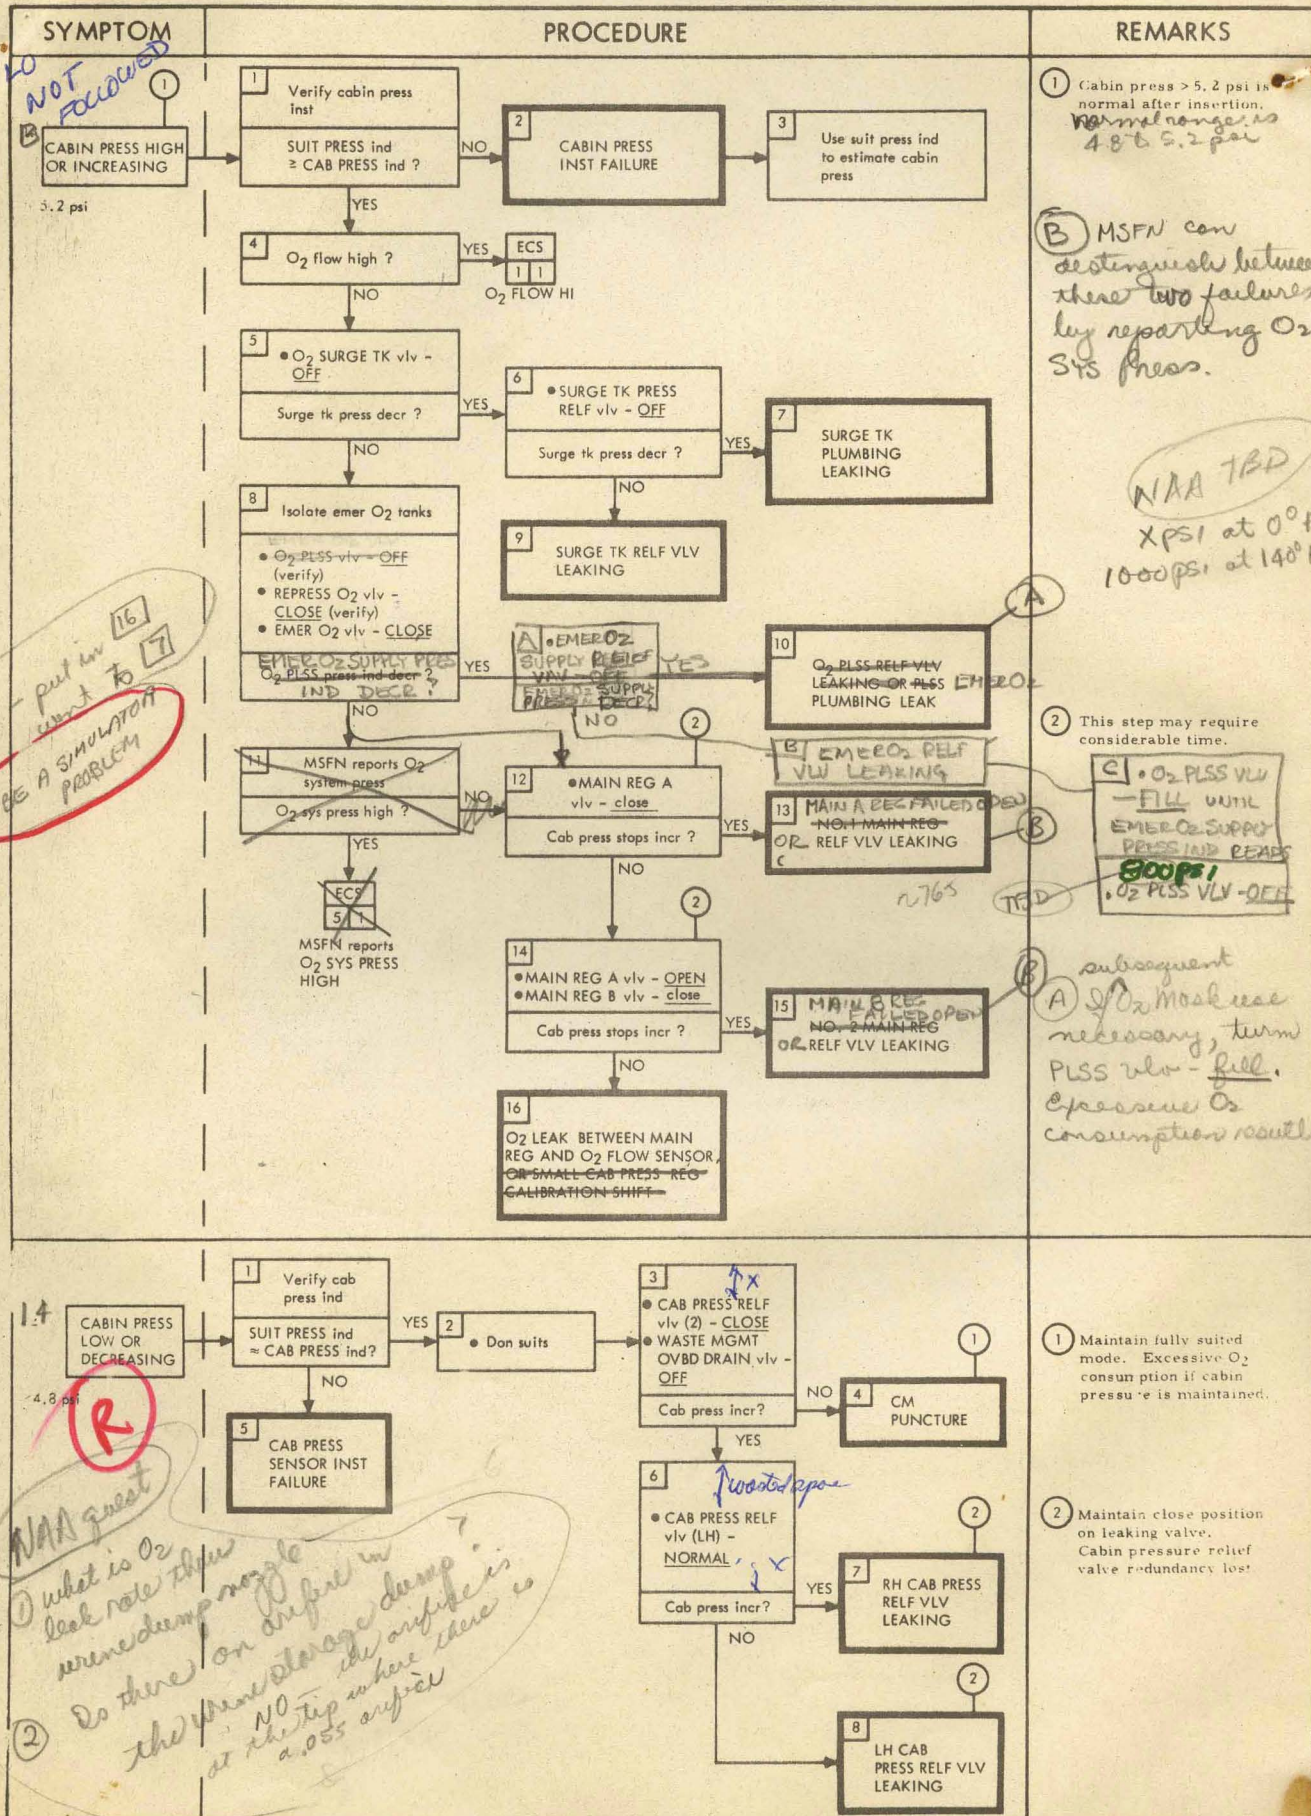 SYMPTOM
PROCEDURE
REMARKS
LO
NOT
FOLLOWED
1
CABIN PRESS HIGH
OR INCREASING
5.2 psi
1
Verify cabin press
inst
SUIT PRESS ind
≥ CAB PRESS ind ?
NO
YES
2
CABIN PRESS
INST FAILURE
3
Use suit press ind
to estimate cabin
press
4
O2 flow high ?
YES
NO
ECS
1 1
O2 FLOW HI
5
• O2 SURGE TK vlv -
OFF
Surge tk press decr ?
YES
NO
6
• SURGE TK PRESS
RELF vlv - OFF
Surge tk press decr ?
YES
NO
7
SURGE TK
PLUMBING
LEAKING
8
Isolate emer O2 tanks
• O2 PLSS vlv - OFF
(verify)
• REPRESS O2 vlv -
CLOSE (verify)
• EMER O2 vlv - CLOSE
EMER O2 SUPPLY PRES
O2 PLSS press ind decr ?
IND DECR ?
YES
NO
9
SURGE TK RELF VLV
LEAKING
A • EMER O2
SUPPLY RELIEF
VAV - OFF
EMER O2 SUPPLY
PRESS DECR?
YES
NO
10
O2 PLSS RELF VLV
LEAKING OR PLSS EMER O2
PLUMBING LEAK
A
B EMER O2 RELF
VLV LEAKING
11
MSFN reports O2
system press
O2 sys press high ?
NO
YES
ECS
5 1
MSFN reports
O2 SYS PRESS
HIGH
2
12
• MAIN REG A
vlv - close
Cab press stops incr ?
YES
NO
13 MAIN A REG FAILED OPEN
NO. 1 MAIN REG
OR RELF VLV LEAKING
C
B
~765
TBD
2
14
• MAIN REG A vlv - OPEN
• MAIN REG B vlv - close
Cab press stops incr ?
YES
NO
15 MAIN B REG
FAILED OPEN
NO. 2 MAIN REG
OR RELF VLV LEAKING
B
16
O2 LEAK BETWEEN MAIN
REG AND O2 FLOW SENSOR,
OR SMALL CAB PRESS REG
CALIBRATION SHIFT
- put in 16
went to 7
BE A SIMULATOR
PROBLEM
1 Cabin press > 5.2 psi is
normal after insertion.
Normal range is
4.8 to 5.2 psi
B MSFN can
destinguish between
these two failures
by reporting O2
SYS Press.
NAA TBD
X psi at 0°
1000 psi at 140°
2 This step may require
considerable time.
C • O2 PLSS VLV
- FILL UNTIL
EMER O2 SUPPLY
PRESS IND READS
800 PSI
• O2 PLSS VLV - OFF
subsequent
A If O2 Mask use
necessary, turn
PLSS vlv - fill.
Excessive O2
consumption result
1.4
CABIN PRESS
LOW OR
DECREASING
4.8 psi
R
1
Verify cab
press ind
SUIT PRESS ind
≈ CAB PRESS ind?
YES
NO
2
• Don suits
3
↑ x
• CAB PRESS RELF
vlv (2) - CLOSE
• WASTE MGMT
OVBD DRAIN vlv -
OFF
Cab press incr?
NO
YES
1
4
CM
PUNCTURE
5
CAB PRESS
SENSOR INST
FAILURE
6
• CAB PRESS RELF
vlv (LH) -
NORMAL
x
Cab press incr?
YES
NO
2
7
RH CAB PRESS
RELF VLV
LEAKING
2
8
LH CAB
PRESS RELF VLV
LEAKING
1 Maintain fully suited
mode. Excessive O2
consumption if cabin
pressure is maintained.
2 Maintain close position
on leaking valve.
Cabin pressure relief
valve redundancy lost
NAA quest
1 what is O2
leak rate thru
urine dump nozzle
2 Is there an orifice in
the urine storage dump ?
NO - the orifice is
at the tip where there is
a .055 orifice